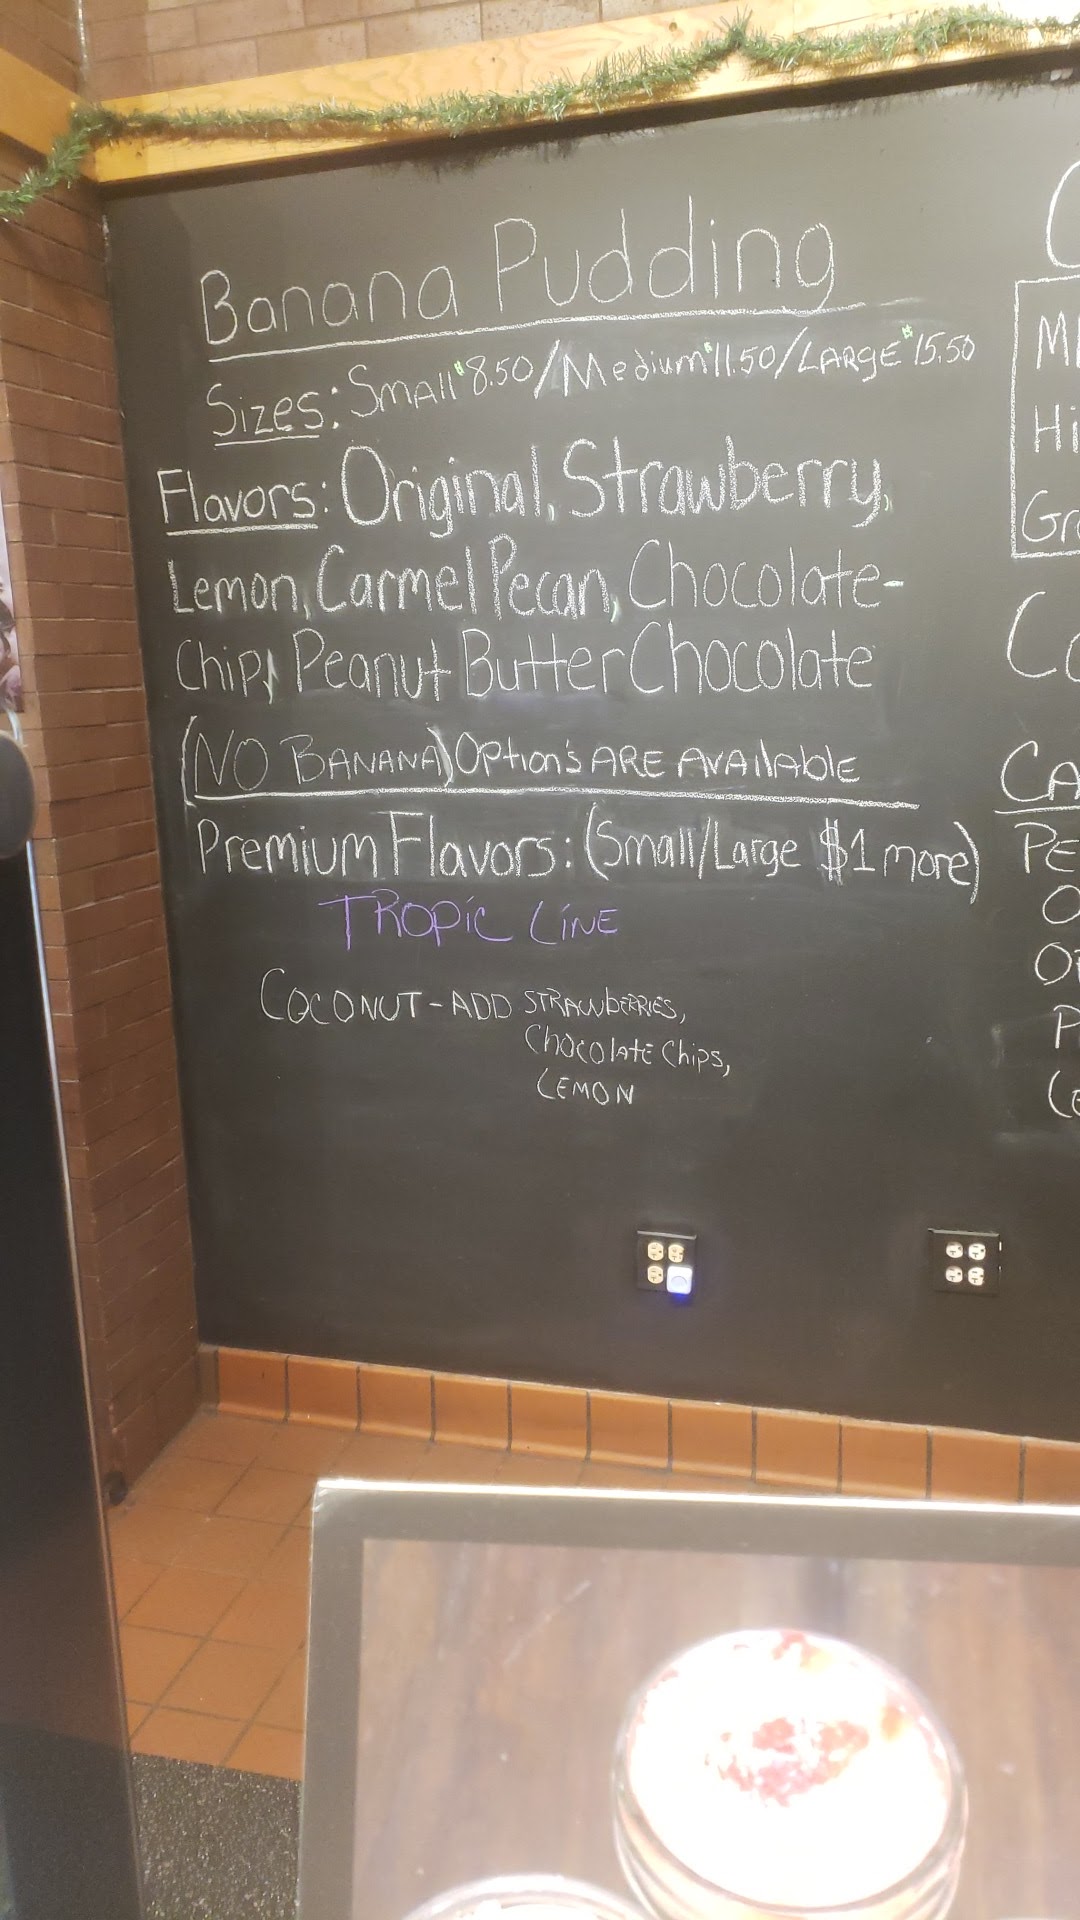 Banana Pudding
Sizes: Small $8.50/Medium $11.50/LARGE $15.50
Flavors: Original, Strawberry,
Lemon, Carmel Pecan, Chocolate-
Chip, Peanut Butter Chocolate
(NO BANANA) Option's ARE AVAilAblE
Premium Flavors: (Small/Large $1 more)
TROPiC LiNE
COCONUT - ADD STRAWbERRIES,
ChocolatE Chips,
LEMON